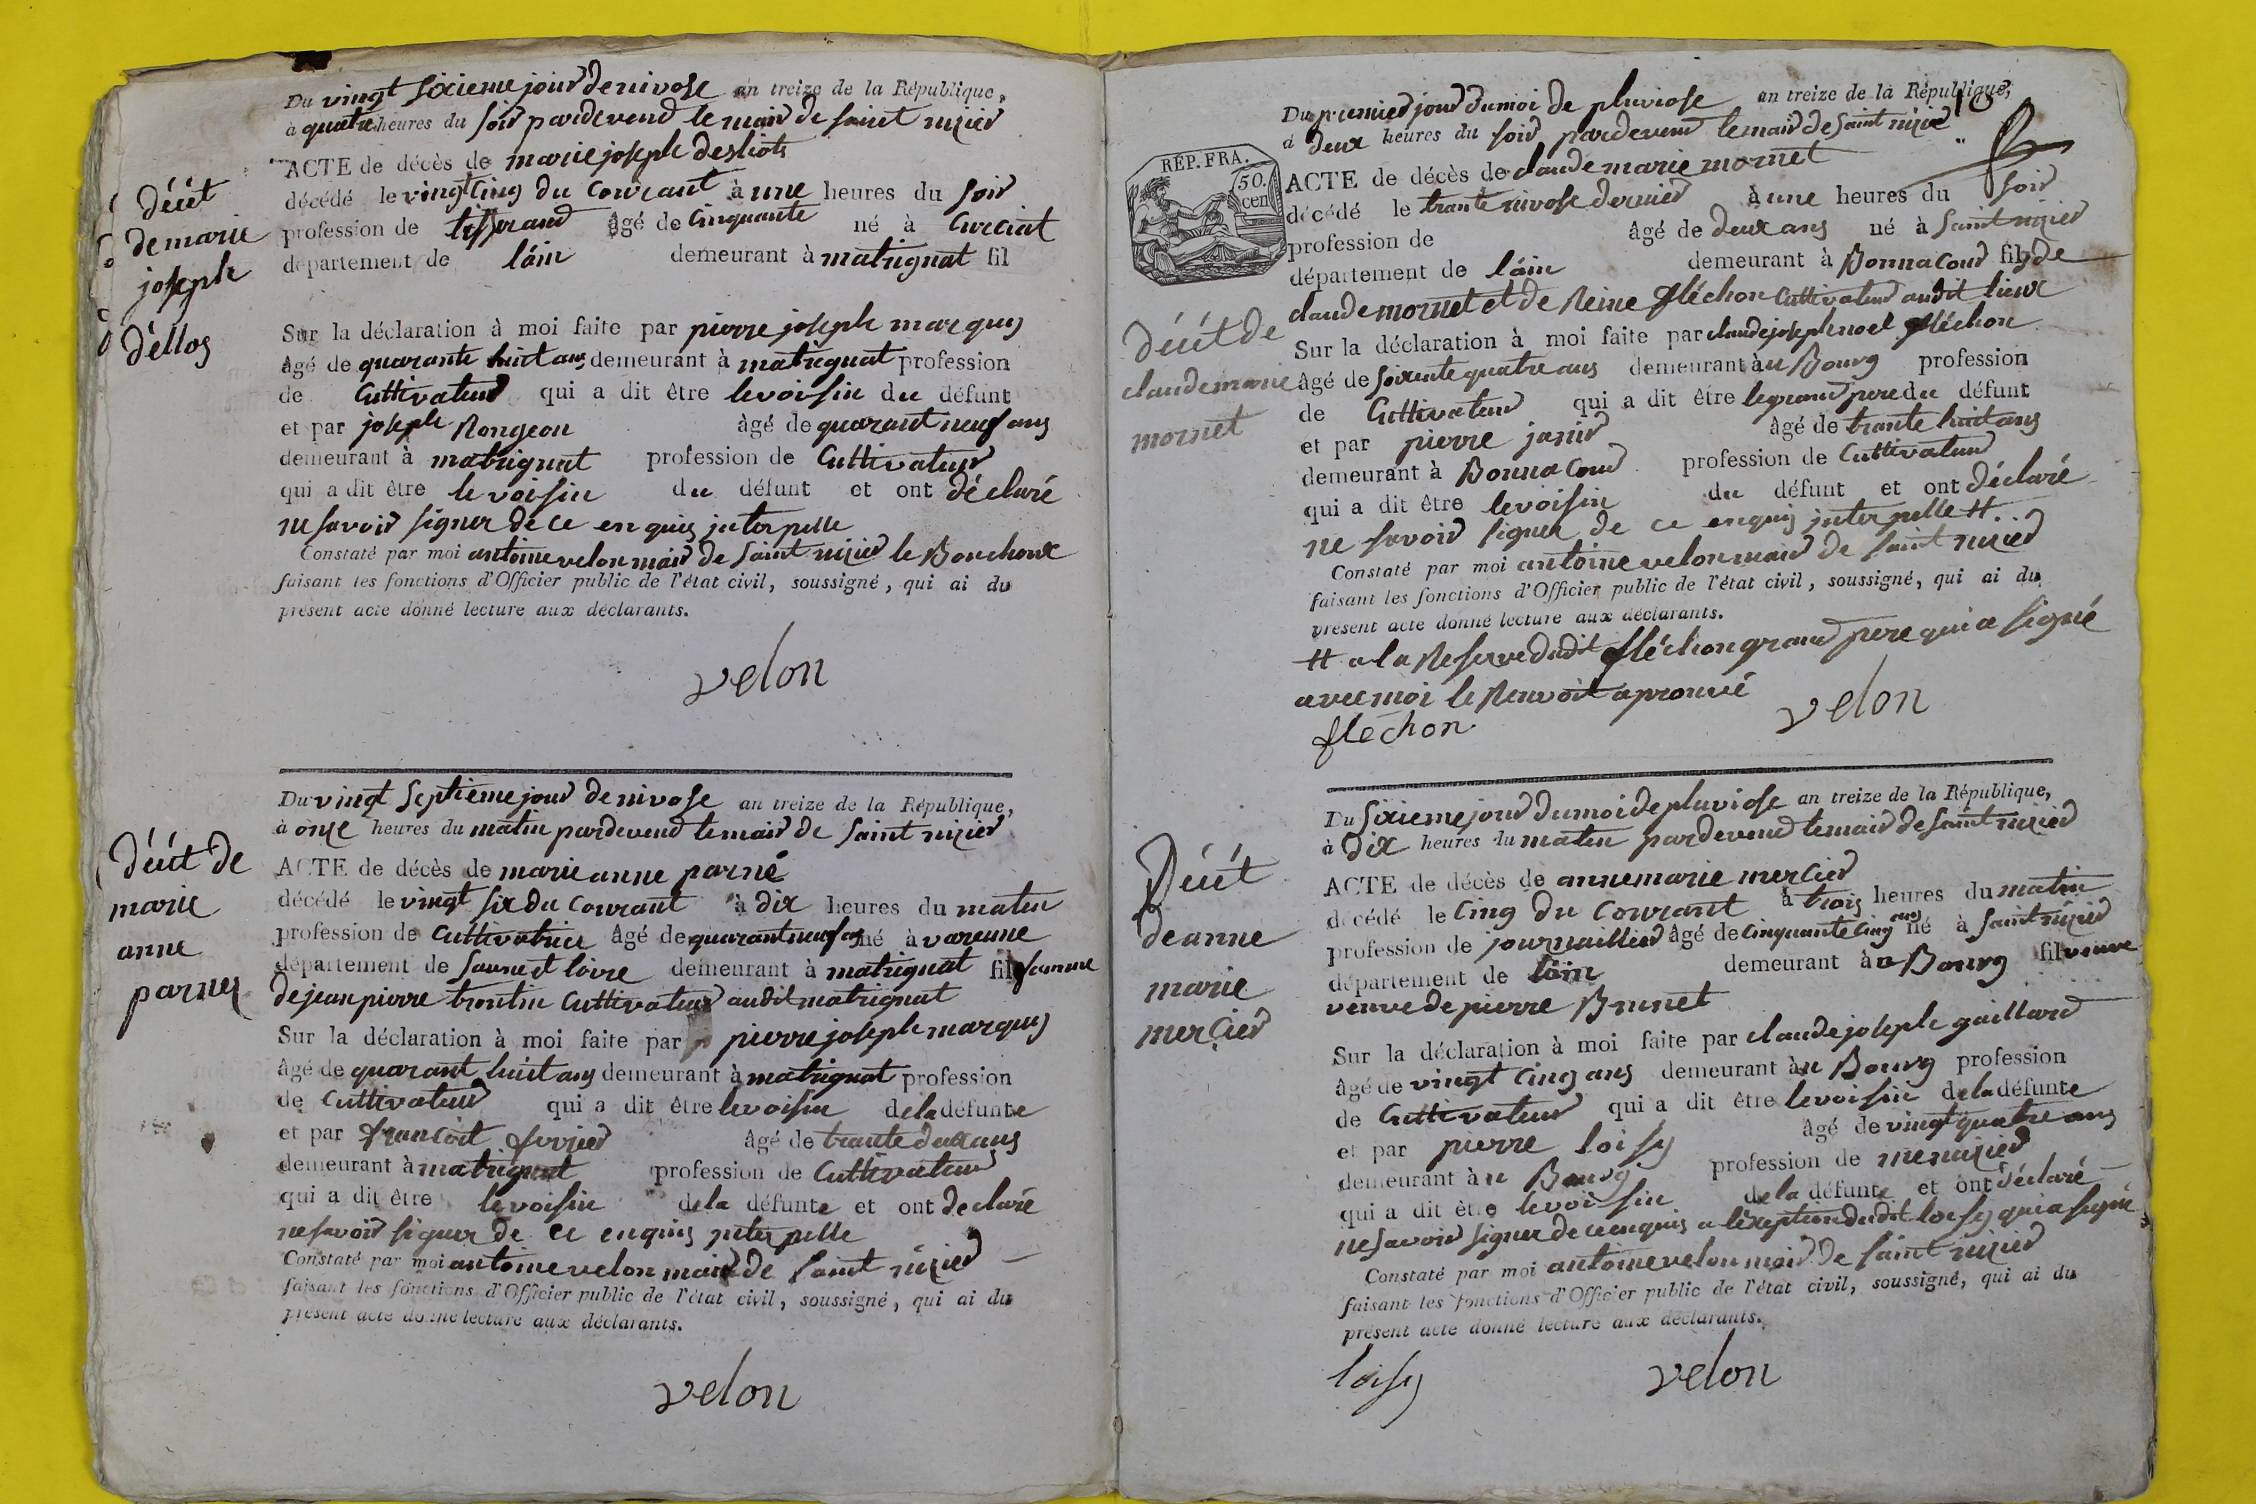 Du vingt sixieme jour de nivose an treize de la République,
à quatre heures du soir pardevend le mair de saint nizier
ACTE de décès de marie joseph desliots
décédé le vingt cinq du courant à une heures du soir
profession de tisserand âgé de cinquante né à Curciat
département de láin demeurant à matrignat fil
décét
de marie
joseph
déllos
Sur la déclaration à moi faite par pierre joseph marquis
âgé de quarante huit ans demeurant à matrignat profession
de Cultivateur qui a dit être le voisin du défunt
et par joseph Rongeon âgé de quarant neuf ans
demeurant à matrignat profession de Cultivateur
qui a dit être le voisin du défunt et ont déclaré
ne savoir signer de ce enquis interpelle
Constaté par moi antoine velon mair de saint nizier le Bouchoux
faisant les fonctions d'Officier public de l'état civil, soussigné, qui ai du
présent acte donné lecture aux déclarants.
velon
Du vingt septieme jour de nivose an treize de la République,
à onze heures du matin pardevend le mair de saint nizier
ACTE de décès de marie anne parné
décédé le vingt six du courant à dix heures du matin
profession de cultivatrice âgé de quarant neuf ans né à varenne
département de saune et loire demeurant à matrignat fil femme
de jean pierre troutin Cultivateur audit matrignat
décét de
marie
anne
parnez
Sur la déclaration à moi faite par pierre joseph marquis
âgé de quarant huit ans demeurant à matrignat profession
de Cultivateur qui a dit être le voisin de la défunte
et par francoit ferrier âgé de trante deux ans
demeurant à matrignat profession de Cultivateur
qui a dit être le voisin de la défunte et ont declaré
ne savoir signer de ce enquis interpelle
Constaté par moi antoine velon mair de saint nizier
faisant les fonctions d'Officier public de l'état civil, soussigné, qui ai du
présent acte donné lecture aux déclarants.
velon
10
Du premier jour du moi de pluviose an treize de la République,
à deux heures du soir pardevend le mair de saint nizier
RÉP. FRA.
50.
cen
ACTE de décès de claude marie mornet
décédé le trante nivose dernier à une heures du soir
profession de âgé de deux ans né à saint nizier
département de láin demeurant à Bonnacour fils de
claude mornet et de Reine fléchon cultivateur audit lieux
décét de
claude marie
mornet
Sur la déclaration à moi faite par claude joseph noel fléchon
âgé de soixente quatre ans demeurant à u Bourg profession
de Cultivateur qui a dit être le grand pere du défunt
et par pierre janir âgé de trante huit ans
demeurant à Bonnacour profession de Cultivateur
qui a dit être le voisin du défunt et ont déclaré
ne savoir signer de ce enquis interpelle #
Constaté par moi antoine velon mair de saint nizier
faisant les fonctions d'Officier public de l'état civil, soussigné, qui ai du
présent acte donné lecture aux déclarants.
# a la Reserve dudit fléchon grand pere qui a signé
avec moi le Renvoit aprouvé
velon
fléchon
Du sixieme jour du moi de pluviose an treize de la République,
à dix heures du matin pardevend le mair de saint nizier
ACTE de décès de anne marie mercier
décédé le cinq du courant à trois heures du matin
profession de journaillier âgé de cinquante cinq ans né à saint nizier
département de láin demeurant à u Bourg fil veuve
veuve de pierre Brunet
Décét
de anne
marie
mercier
Sur la déclaration à moi faite par claude joseph gaillard
âgé de vingt cinq ans demeurant à u Bourg profession
de Cultivateur qui a dit être le voisin de la défunte
et par pierre loisy âgé de vingt quatre ans
demeurant à u Bourg profession de menuzier
qui a dit être le voisin de la défunte et ont déclaré
ne savoir signer de ce enquis a léxeption dudit loisy qui a signé
Constaté par moi antoine velon mair de saint nizier
faisant les fonctions d'Officier public de l'état civil, soussigné, qui ai du
présent acte donné lecture aux déclarants.
loisy velon